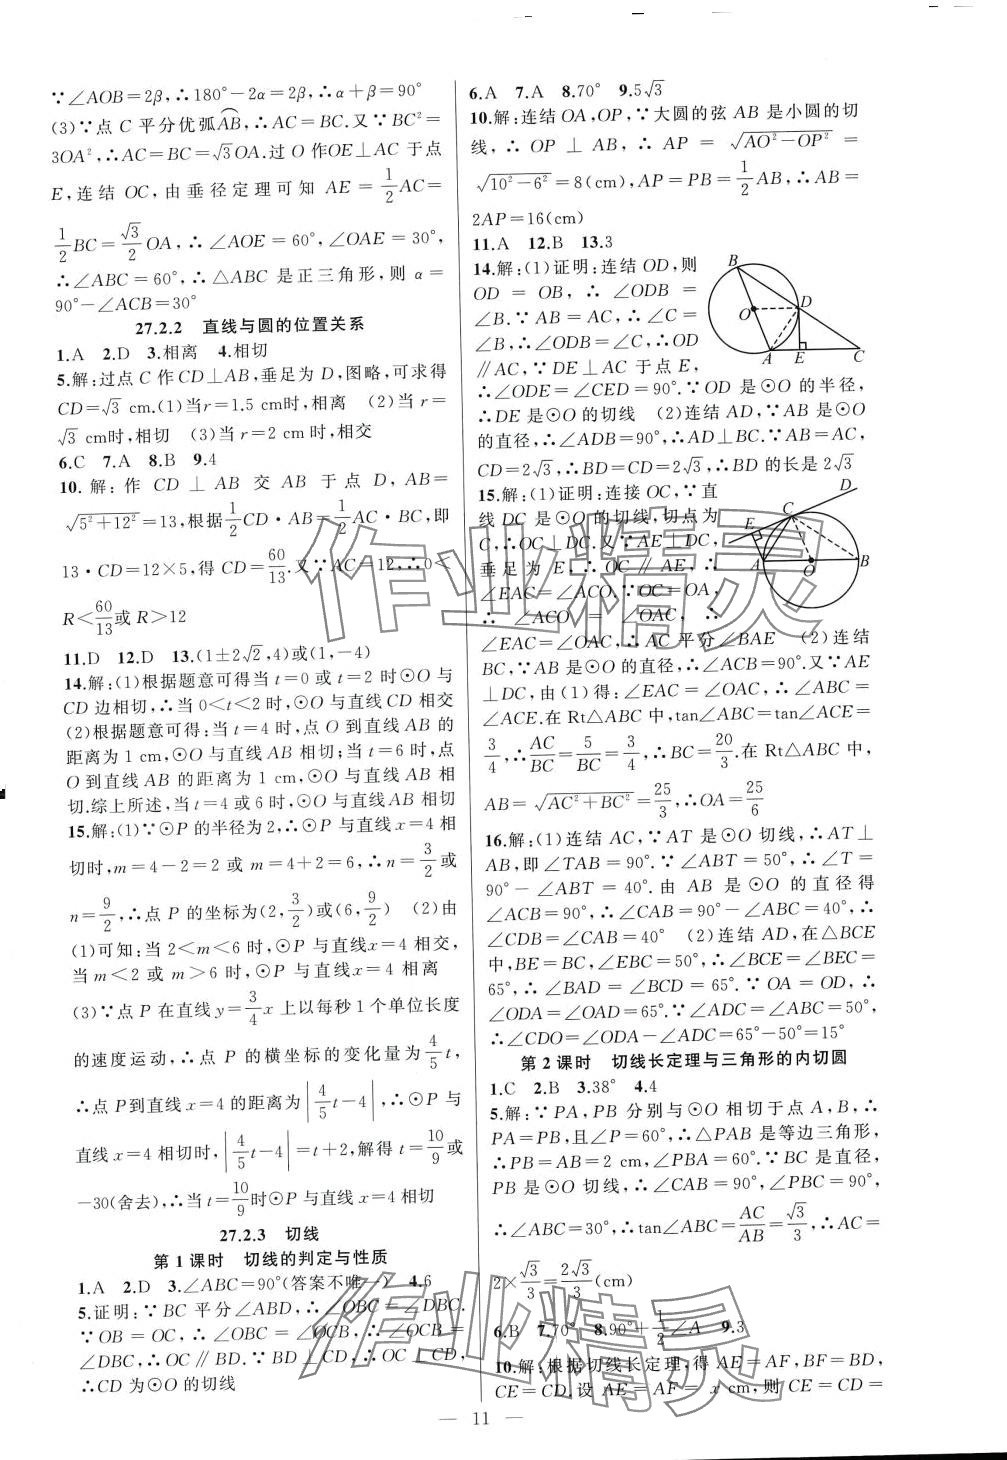 ∵∠AOB=2β,∴180°-2α=2β,∴α+β=90°
(3)∵点 C 平分优弧AB,∴AC=BC.又∵BC²=
3OA²,∴AC=BC=√3OA.过 O 作OE⊥AC 于点
E,连结 OC,由垂径定理可知 AE=1/2AC=
1/2BC=√3/2OA,∴∠AOE=60°,∠OAE=30°,
∴∠ABC=60°,∴△ABC 是正三角形,则 α=
90°-∠ACB=30°
27.2.2 直线与圆的位置关系
1.A 2.D 3.相离 4.相切
5.解:过点 C 作CD⊥AB,垂足为 D,图略,可求得
CD=√3 cm.(1)当r=1.5 cm时,相离 (2)当 r=
√3 cm时,相切 (3)当 r=2 cm 时,相交
6.C 7.A 8.B 9.4
10.解:作 CD⊥AB 交 AB 于点 D,AB=
√5²+12²=13,根据1/2CD·AB=1/2AC·BC,即
13·CD=12×5,得 CD=60/13.又∵AC=12,∴0<
R<60/13或 R>12
11.D 12.D 13.(1±2√2,4)或(1,-4)
14.解:(1)根据题意可得当 t=0 或 t=2 时⊙O 与
CD 边相切,∴当 0<t<2 时,⊙O 与直线 CD 相交
(2)根据题意可得:当 t=4 时,点 O 到直线 AB 的
距离为 1 cm,⊙O 与直线 AB 相切;当 t=6 时,点
O 到直线 AB 的距离为 1 cm,⊙O 与直线 AB 相
切.综上所述,当 t=4 或 6 时,⊙O 与直线 AB 相切
15.解:(1)∵⊙P 的半径为 2,∴⊙P 与直线 x=4 相
切时,m=4-2=2 或 m=4+2=6,∴n=3/2或
n=9/2,∴点 P 的坐标为(2,3/2)或(6,9/2) (2)由
(1)可知:当 2<m<6 时,⊙P 与直线x=4 相交,
当 m<2 或 m>6 时,⊙P 与直线x=4 相离
(3)∵点 P 在直线 y=3/4x 上以每秒 1 个单位长度
的速度运动,∴点 P 的横坐标的变化量为4/5t,
∴点 P到直线 x=4 的距离为|4/5t-4|,∴⊙P 与
直线 x=4 相切时,|4/5t-4|=t+2,解得 t=10/9或
-30(舍去),∴当 t=10/9时⊙P 与直线 x=4 相切
27.2.3 切线
第 1 课时 切线的判定与性质
1.A 2.D 3.∠ABC=90°(答案不唯一) 4.6
5.证明:∵BC 平分∠ABD,∴∠OBC=∠DBC.
∵OB=OC,∴∠OBC=∠OCB,∴∠OCB=
∠DBC,∴OC∥BD.∵BD⊥CD,∴OC⊥CD,
∴CD 为⊙O 的切线
6.A 7.A 8.70° 9.5√3
10.解:连结 OA,OP,∵大圆的弦 AB 是小圆的切
线,∴OP⊥AB,∴AP=√AO²-OP²=
√10²-6²=8(cm),AP=PB=1/2AB,∴AB=
2AP=16(cm)
11.A 12.B 13.3
14.解:(1)证明:连结 OD,则
OD=OB,∴∠ODB=
∠B.∵AB=AC,∴∠C=
∠B,∴∠ODB=∠C,∴OD
∥AC,∵DE⊥AC 于点 E,
∴∠ODE=∠CED=90°.∵OD 是⊙O 的半径,
∴DE 是⊙O 的切线 (2)连结 AD,∵AB 是⊙O
的直径,∴∠ADB=90°,∴AD⊥BC.∵AB=AC,
CD=2√3,∴BD=CD=2√3,∴BD 的长是 2√3
B
O
D
A
E
C
15.解:(1)证明:连接 OC,∵直
线 DC 是⊙O 的切线,切点为
C,∴OC⊥DC.又∵AE⊥DC,
垂足为 E,∴OC∥AE,∴
∠EAC=∠ACO.∵OC=OA,
∴∠ACO=∠OAC,∴
∠EAC=∠OAC,∴AC 平分∠BAE (2)连结
BC,∵AB 是⊙O 的直径,∴∠ACB=90°.又∵AE
⊥DC,由(1)得:∠EAC=∠OAC,∴∠ABC=
∠ACE.在 Rt△ABC 中,tan∠ABC=tan∠ACE=
3/4,∴AC/BC=5/BC=3/4,∴BC=20/3.在 Rt△ABC 中,
AB=√AC²+BC²=25/3,∴OA=25/6
D
C
E
A
O
B
16.解:(1)连结 AC,∵AT 是⊙O 切线,∴AT⊥
AB,即∠TAB=90°.∵∠ABT=50°,∴∠T=
90°-∠ABT=40°.由 AB 是⊙O 的直径得
∠ACB=90°,∴∠CAB=90°-∠ABC=40°,∴
∠CDB=∠CAB=40° (2)连结 AD,在△BCE
中,BE=BC,∠EBC=50°,∴∠BCE=∠BEC=
65°,∴∠BAD=∠BCD=65°.∵OA=OD,∴
∠ODA=∠OAD=65°.∵∠ADC=∠ABC=50°,
∴∠CDO=∠ODA-∠ADC=65°-50°=15°
第 2 课时 切线长定理与三角形的内切圆
1.C 2.B 3.38° 4.4
5.解:∵PA,PB 分别与⊙O 相切于点 A,B,∴
PA=PB,且∠P=60°,∴△PAB 是等边三角形,
∴PB=AB=2 cm,∠PBA=60°.∵BC 是直径,
PB 是⊙O 切线,∴∠CAB=90°,∠PBC=90°,
∴∠ABC=30°,∴tan∠ABC=AC/AB=√3/3,∴AC=
2×√3/3=2√3/3(cm)
6.B 7.70° 8.90°+1/2∠A 9.3
10.解:根据切线长定理,得 AE=AF,BF=BD,
CE=CD.设 AE=AF=x cm,则 CE=CD=
— 11 —
作业精灵
作业精灵